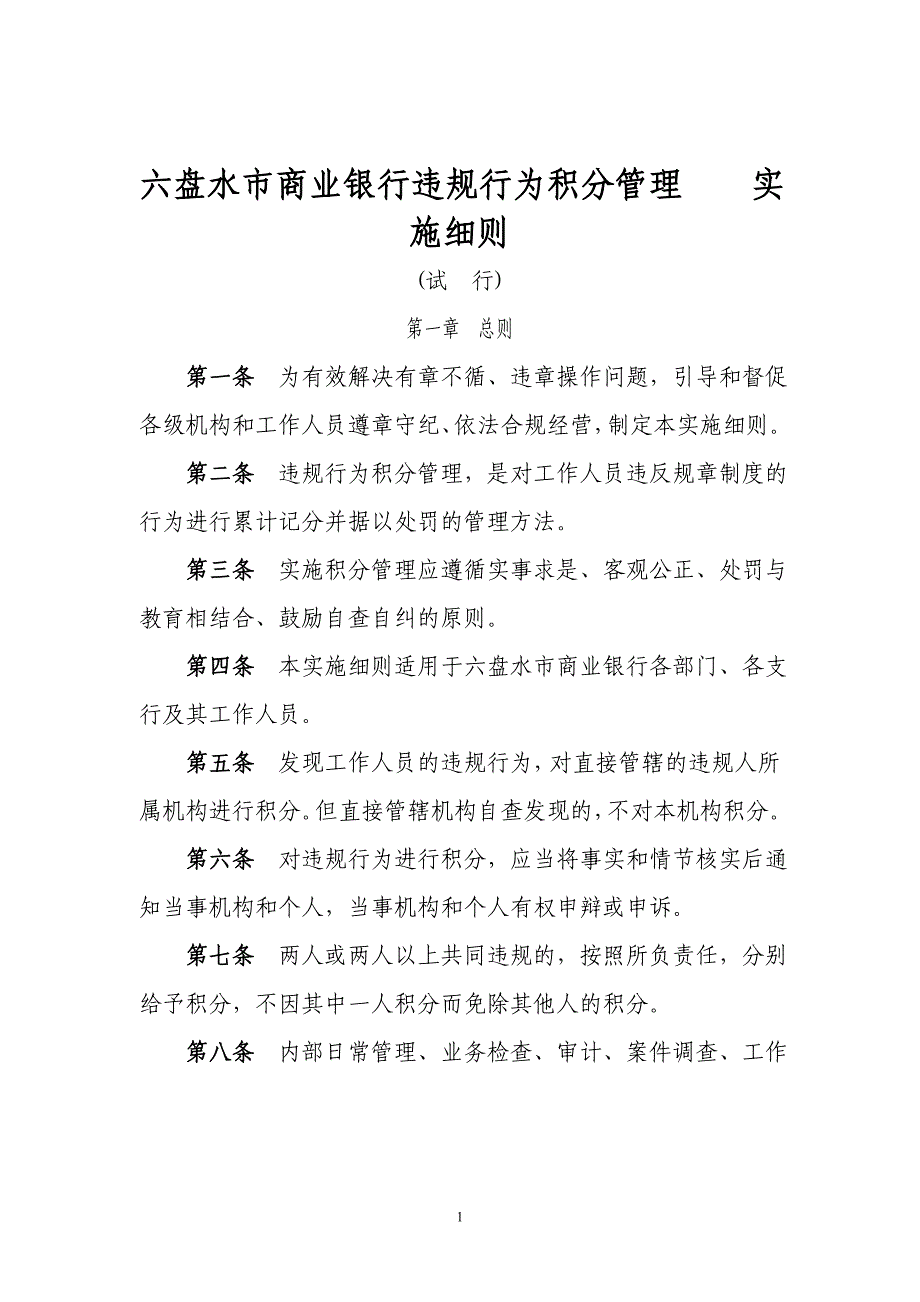 六盘水市商业银行违规行为积分管理　　实
施细则
(试　行)
第一章　总则
第一条　为有效解决有章不循、违章操作问题，引导和督促
各级机构和工作人员遵章守纪、依法合规经营，制定本实施细则。
第二条　违规行为积分管理，是对工作人员违反规章制度的
行为进行累计记分并据以处罚的管理方法。
第三条　实施积分管理应遵循实事求是、客观公正、处罚与
教育相结合、鼓励自查自纠的原则。
第四条　本实施细则适用于六盘水市商业银行各部门、各支
行及其工作人员。
第五条　发现工作人员的违规行为，对直接管辖的违规人所
属机构进行积分。但直接管辖机构自查发现的，不对本机构积分。
第六条　对违规行为进行积分，应当将事实和情节核实后通
知当事机构和个人，当事机构和个人有权申辩或申诉。
第七条　两人或两人以上共同违规的，按照所负责任，分别
给予积分，不因其中一人积分而免除其他人的积分。
第八条　内部日常管理、业务检查、审计、案件调查、工作
1